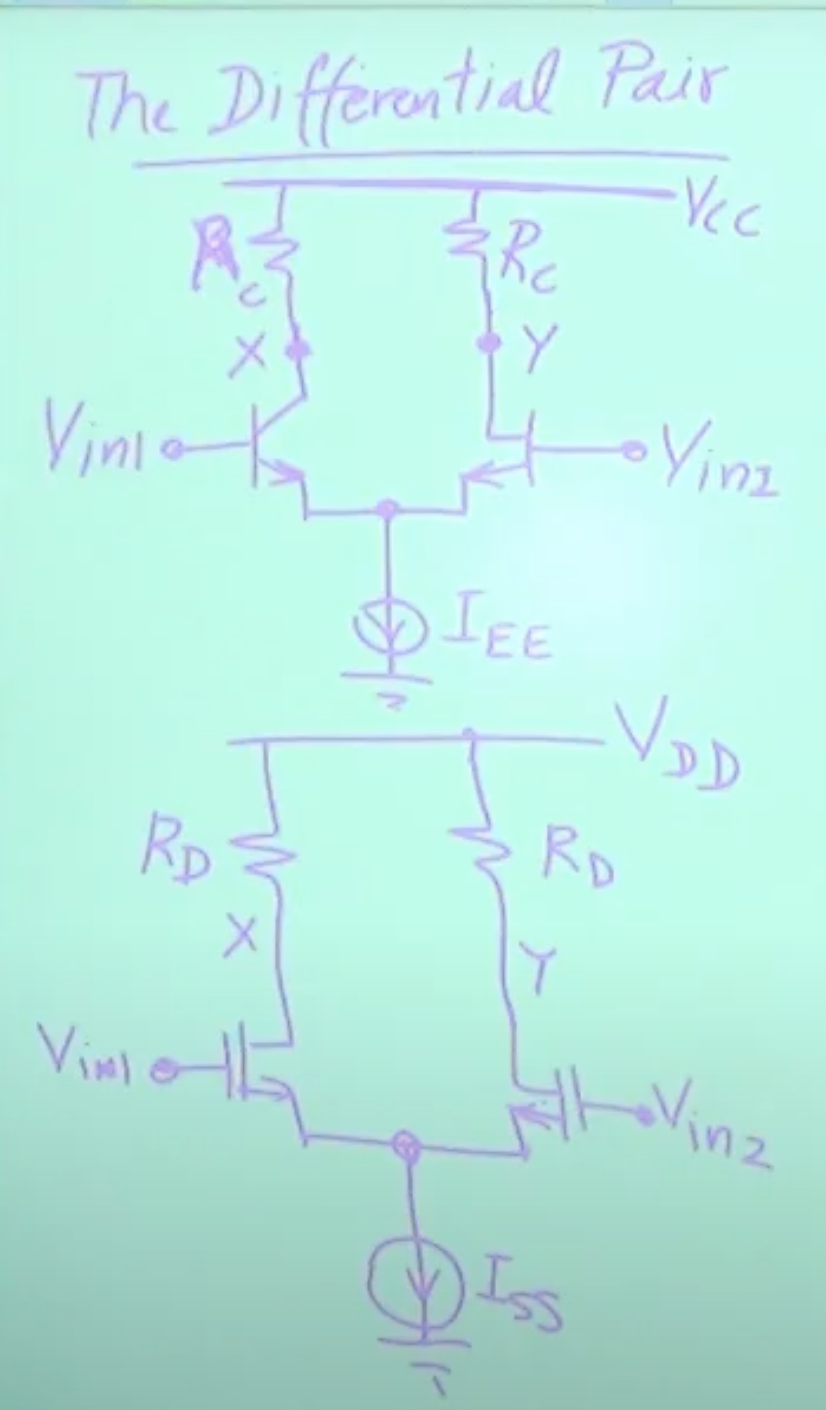 The Differential Pair
VCC
RC
RC
X
Y
Vin1
Vin2
IEE
VDD
RD
RD
X
Y
Vin1
Vin2
ISS